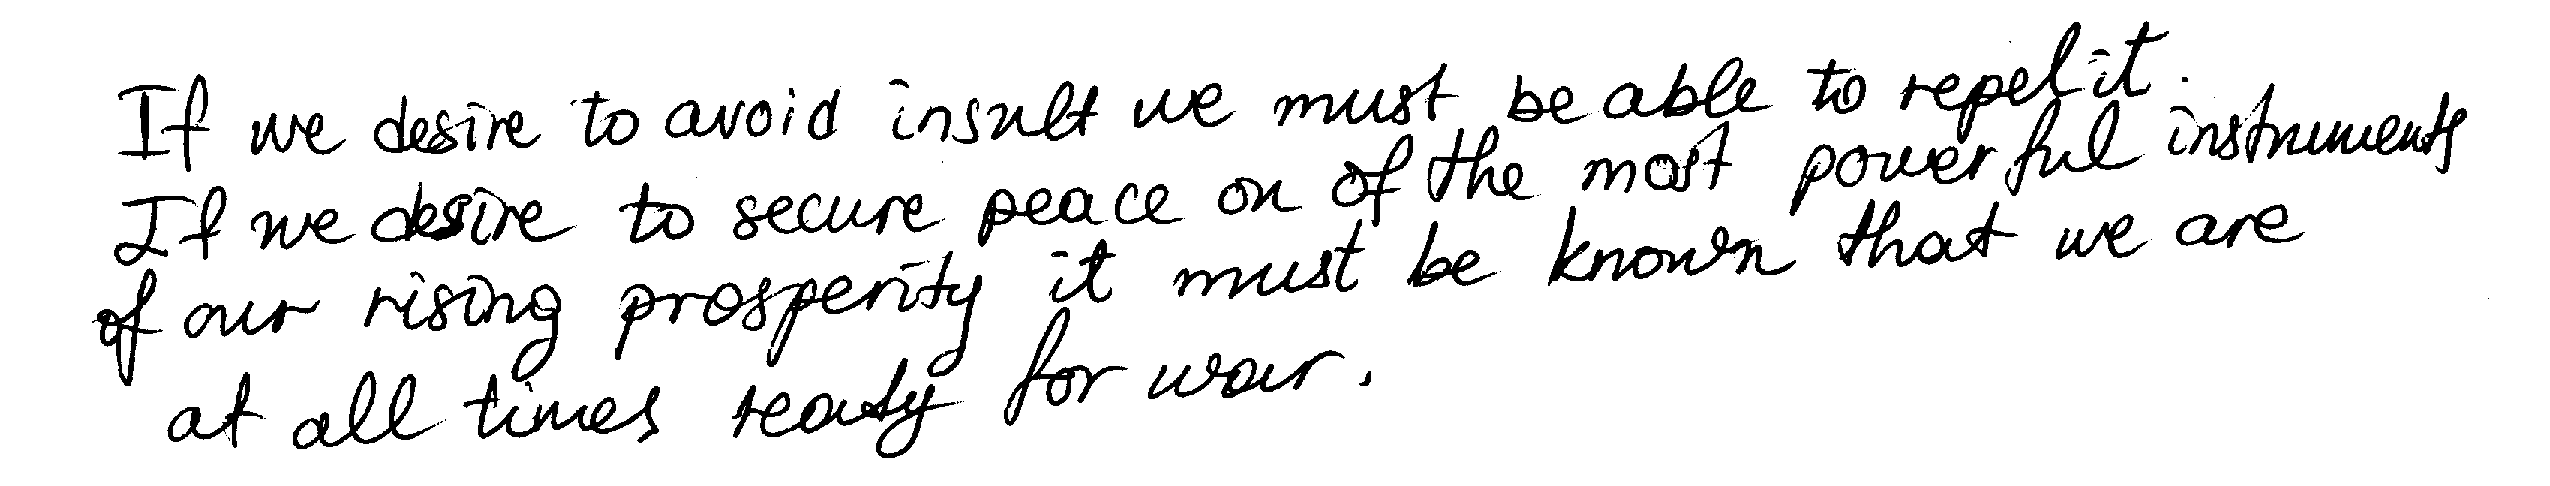 If we desire to avoid insult we must be able to repel it.
If we desire to secure peace on of the most powerful instruments
of our rising prosperity it must be known that we are
at all times ready for war.